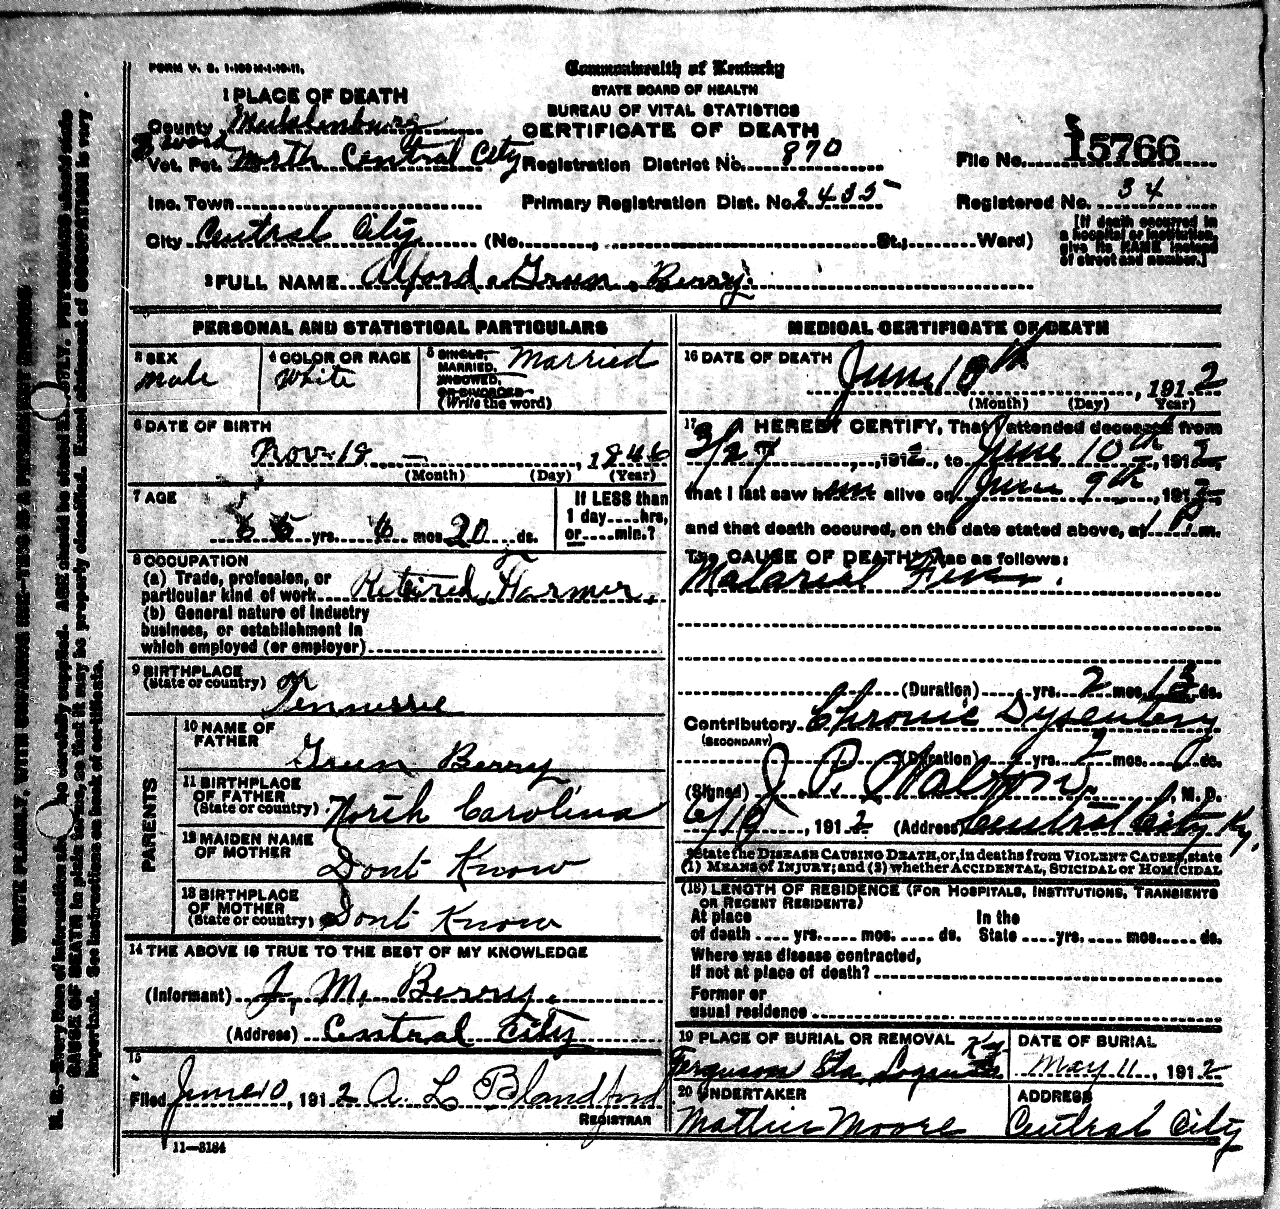 FORM V. S. 1-150 M-1-19-11.
Commonwealth of Kentucky
STATE BOARD OF HEALTH
BUREAU OF VITAL STATISTICS
CERTIFICATE OF DEATH
1 PLACE OF DEATH
County Muhlenburg
Vot. Pct. North Central City
Registration District No. 870
File No. 15766
Inc. Town
Primary Registration Dist. No. 2435
Registered No. 34
City Central City (No. , St.; Ward)
[If death occurred in
a hospital or institution,
give its NAME instead
of street and number.]
2 FULL NAME Alford Grun Berry
PERSONAL AND STATISTICAL PARTICULARS
3 SEX
Male
4 COLOR OR RACE
White
5 SINGLE,
MARRIED,
WIDOWED,
OR DIVORCED
(Write the word)
Married
6 DATE OF BIRTH
Nov 18 , 1846
(Month) (Day) (Year)
7 AGE
yrs. 6 mos. 20 ds.
If LESS than
1 day....hrs,
or....min.?
8 OCCUPATION
(a) Trade, profession, or
particular kind of work Retired Farmer.
(b) General nature of industry
business, or establishment in
which employed (or employer)
9 BIRTHPLACE
(State or country)
Tennessee
PARENTS
10 NAME OF
FATHER
Grun Berry
11 BIRTHPLACE
OF FATHER
(State or country) North Carolina
12 MAIDEN NAME
OF MOTHER
Dont Know
13 BIRTHPLACE
OF MOTHER
(State or country) Dont Know
14 THE ABOVE IS TRUE TO THE BEST OF MY KNOWLEDGE
(Informant) J. M. Berry.
(Address) Central City
15
Filed June 10, 1912 A L Blandford
REGISTRAR
11—3184
MEDICAL CERTIFICATE OF DEATH
16 DATE OF DEATH
June 10th , 1912
(Month) (Day) Year)
17 I HEREBY CERTIFY, That I attended deceased from
3/27 , 1912, to June 10th, 1912,
that I last saw him alive on June 9th, 1912
and that death occured, on the date stated above, at 1 P.m.
The CAUSE OF DEATH* was as follows:
Malarial Fever.
(Duration) yrs. 2 mos. 13 ds.
Contributory Chronic Dysentery
(SECONDARY)
(Duration) yrs. 2 mos. ds.
(Signed) J. P. Walton, M. D.
6/10, 1912 (Address) Central City Ky.
*State the DISEASE CAUSING DEATH, or, in deaths from VIOLENT CAUSES, state
(1) MEANS of INJURY; and (2) whether ACCIDENTAL, SUICIDAL or HOMICIDAL
(18) LENGTH OF RESIDENCE (FOR HOSPITALS, INSTITUTIONS, TRANSIENTS
OR RECENT RESIDENTS)
At place
of death .... yrs..... mos. .... ds.
In the
State ....yrs, .... mos..... ds.
Where was disease contracted,
If not at place of death?
Former or
usual residence
19 PLACE OF BURIAL OR REMOVAL
Ferguson Sta, Logan Co Ky
DATE OF BURIAL
May 11, 1912
20 UNDERTAKER
Mathis Moore
ADDRESS
Central City
N. B.—Every item of information should be carefully supplied. AGE should be stated EXACTLY. PHYSICIANS should state
CAUSE OF DEATH in plain terms, so that it may be properly classified. Exact statement of OCCUPATION is very
important. See instructions on back of certificate.